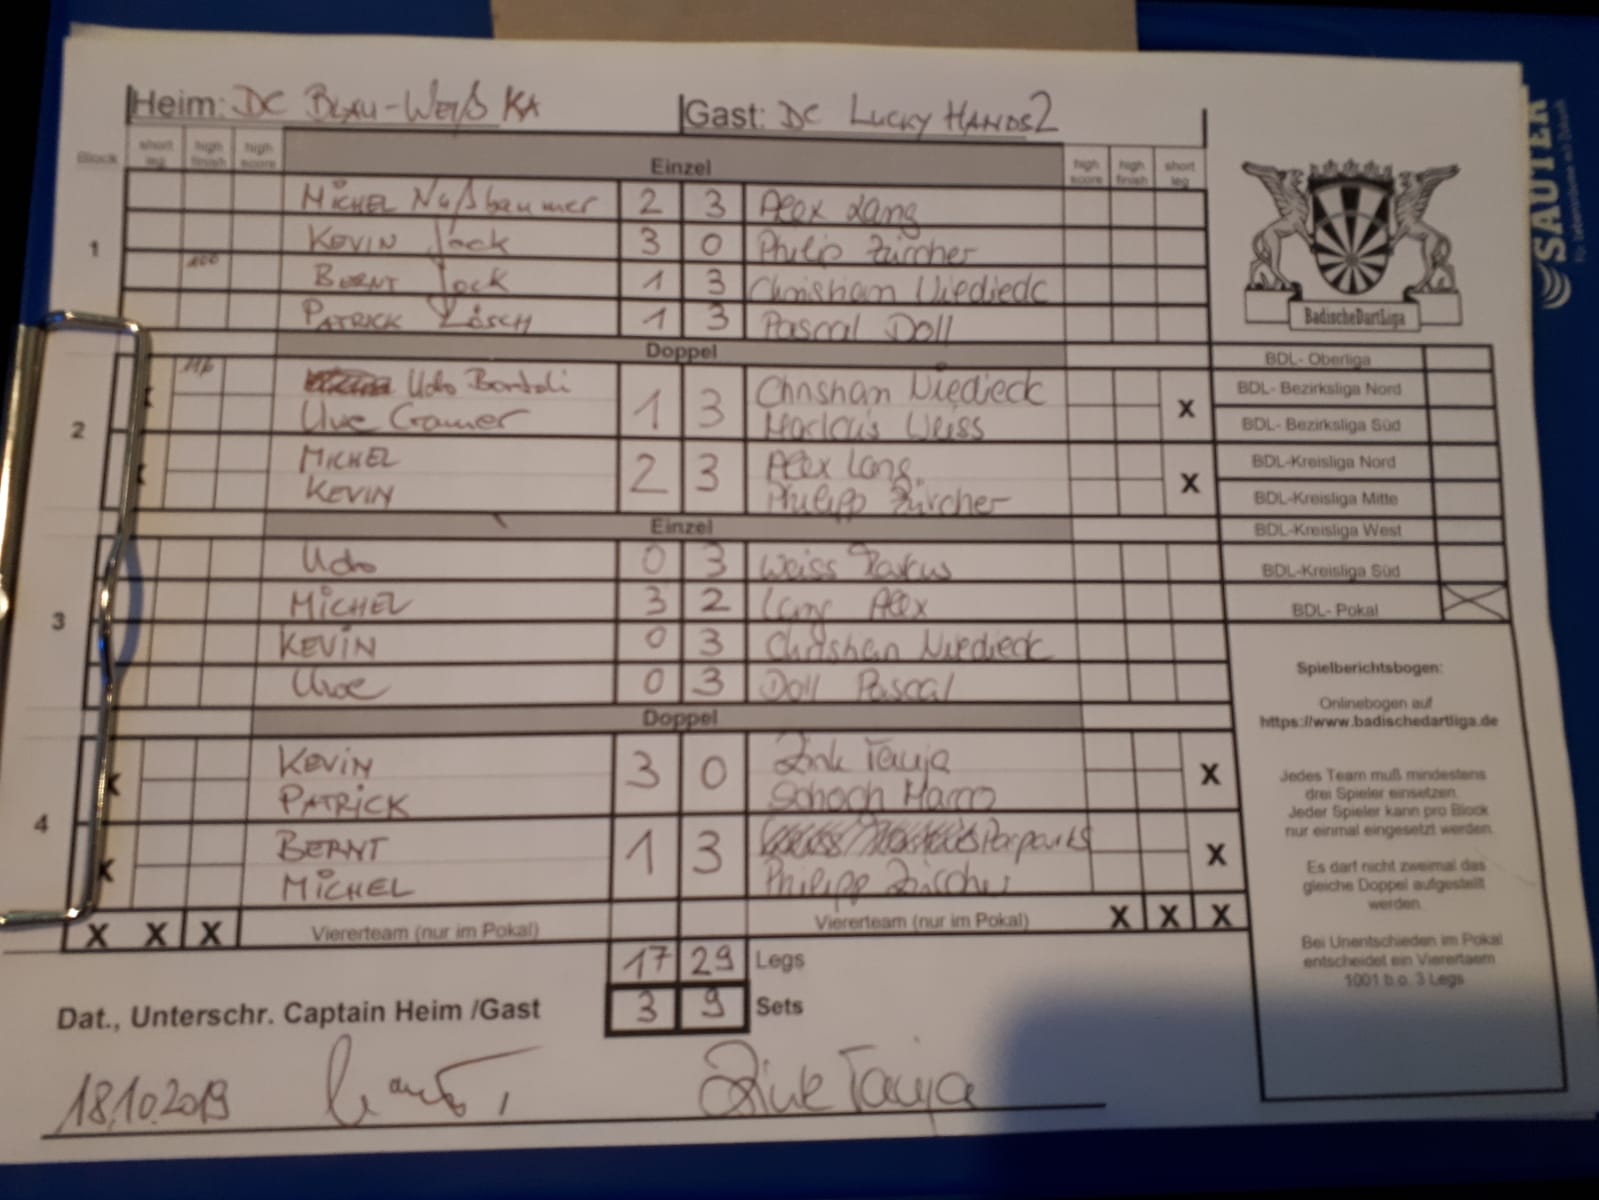 Heim: DC BLAU-WEIß KA Gast: DC LUCKY HANDS2
Block short leg high finish high score Einzel high score high finish short leg
1
MICHEL Nußbaumer 2 3 Alex Lang
KEVIN Jock 3 0 Philip Zürcher
100
BERNT Jock 1 3 Christian Niedieck
PATRICK Lösch 1 3 Pascal Doll
Doppel
2
Udo Bartoli 1 3 Christian Niedieck
Uwe Cramer Markus Weiss X
MICHEL 2 3 Alex Lang
KEVIN Philipp Zürcher X
Einzel
3
Udo 0 3 Weiss
MICHEL 3 2 Lang Alex
KEVIN 0 3 Christian Niedieck
Uwe 0 3 Doll Pascal
Doppel
4
X KEVIN 3 0 Zink Tanja X
PATRICK Schoch Marco
X BERNT 1 3 X
MICHEL Philipp Zürcher
X X X Viererteam (nur im Pokal) Viererteam (nur im Pokal) X X X
17 29 Legs
3 9 Sets
Dat., Unterschr. Captain Heim /Gast
18.10.2019 Zink Tanja
BadischeDartLiga
BDL- Oberliga
BDL- Bezirksliga Nord
BDL- Bezirksliga Süd
BDL-Kreisliga Nord
BDL-Kreisliga Mitte
BDL-Kreisliga West
BDL-Kreisliga Süd
BDL- Pokal X
Spielberichtsbogen:
Onlinebogen auf
https://www.badischedartliga.de
Jedes Team muß mindestens
drei Spieler einsetzen.
Jeder Spieler kann pro Block
nur einmal eingesetzt werden.
Es darf nicht zweimal das
gleiche Doppel aufgestellt
werden.
Bei Unentschieden im Pokal
entscheidet ein Vierertaem
1001 b.o. 3 Legs
SAUTER